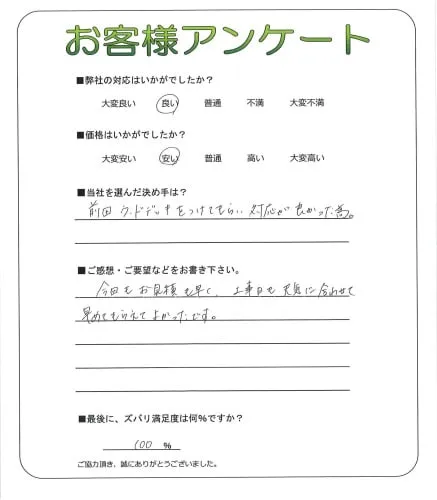 お客様アンケート
■弊社の対応はいかがでしたか？
大変良い 良い 普通 不満 大変不満
■価格はいかがでしたか？
大変安い 安い 普通 高い 大変高い
■当社を選んだ決め手は？
前回ウッドデッキをつけてもらい対応が良かった為。
■ご感想・ご要望などをお書き下さい。
今回もお見積も早く、工事日も天気に合わせて
早めてもらえてよかったです。
■最後に、ズバリ満足度は何％ですか？
100 ％
ご協力頂き、誠にありがとうございました。